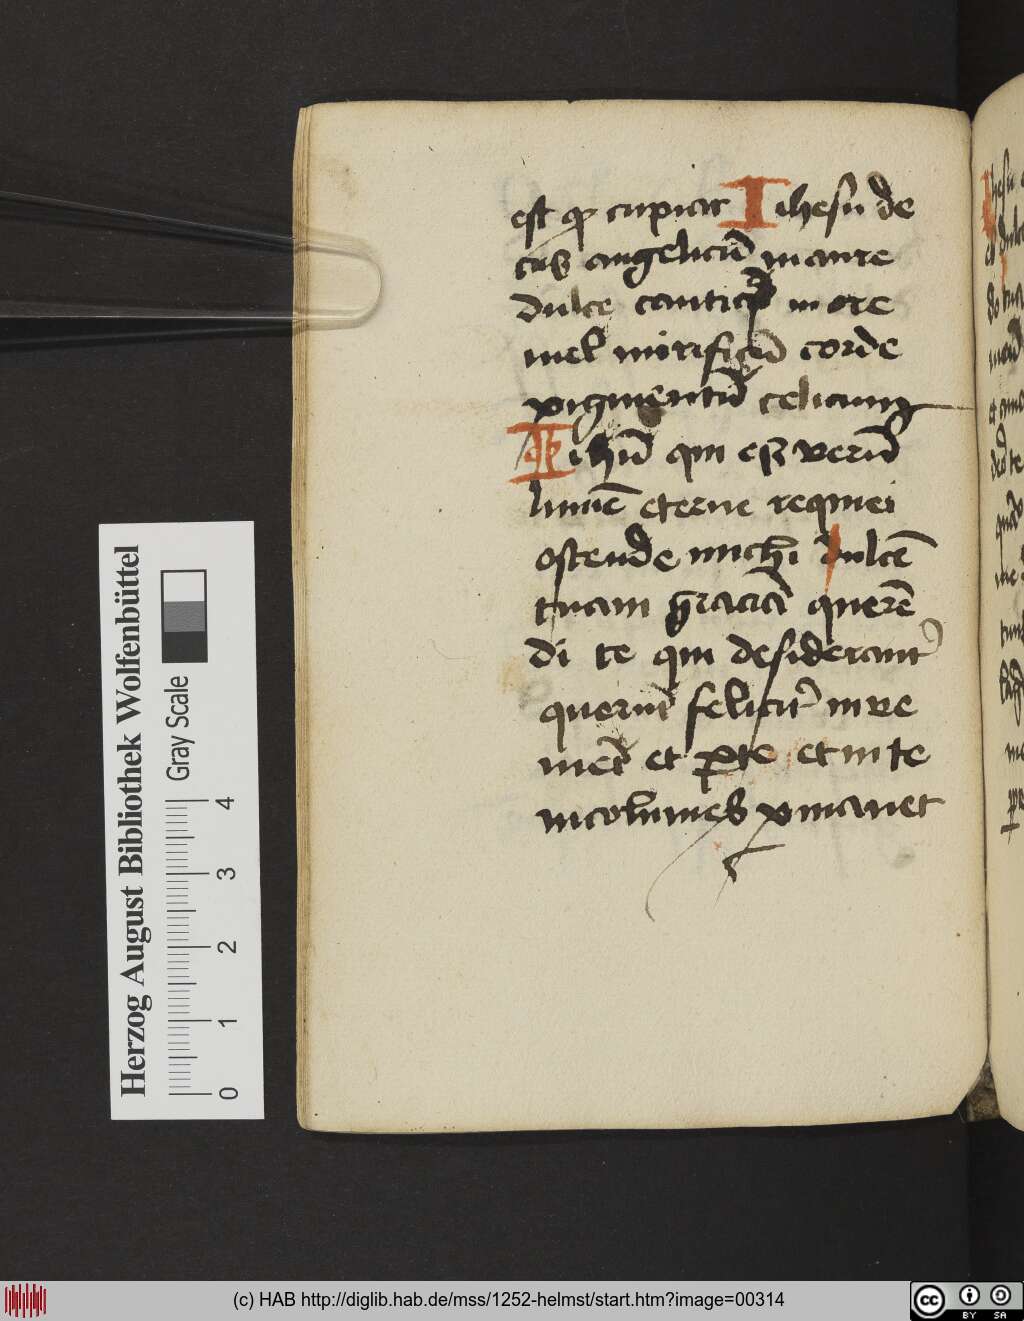 est qͥ cupiat Ihesu de
cus angelicū in aure
dulce canticū in ore
mel mirificū corde
pigmentū celicum
ihū qui es verū
lumē eterne requiei
ostende michi dulcē
tuam graciā querē
di te qui desiderant
querūt felicit̄ inve
niēt et p̱ te et in te
incolumes p̱manet
Herzog August Bibliothek Wolfenbüttel
Gray Scale
0 1 2 3 4
(c) HAB http://diglib.hab.de/mss/1252-helmst/start.htm?image=00314
cc BY SA